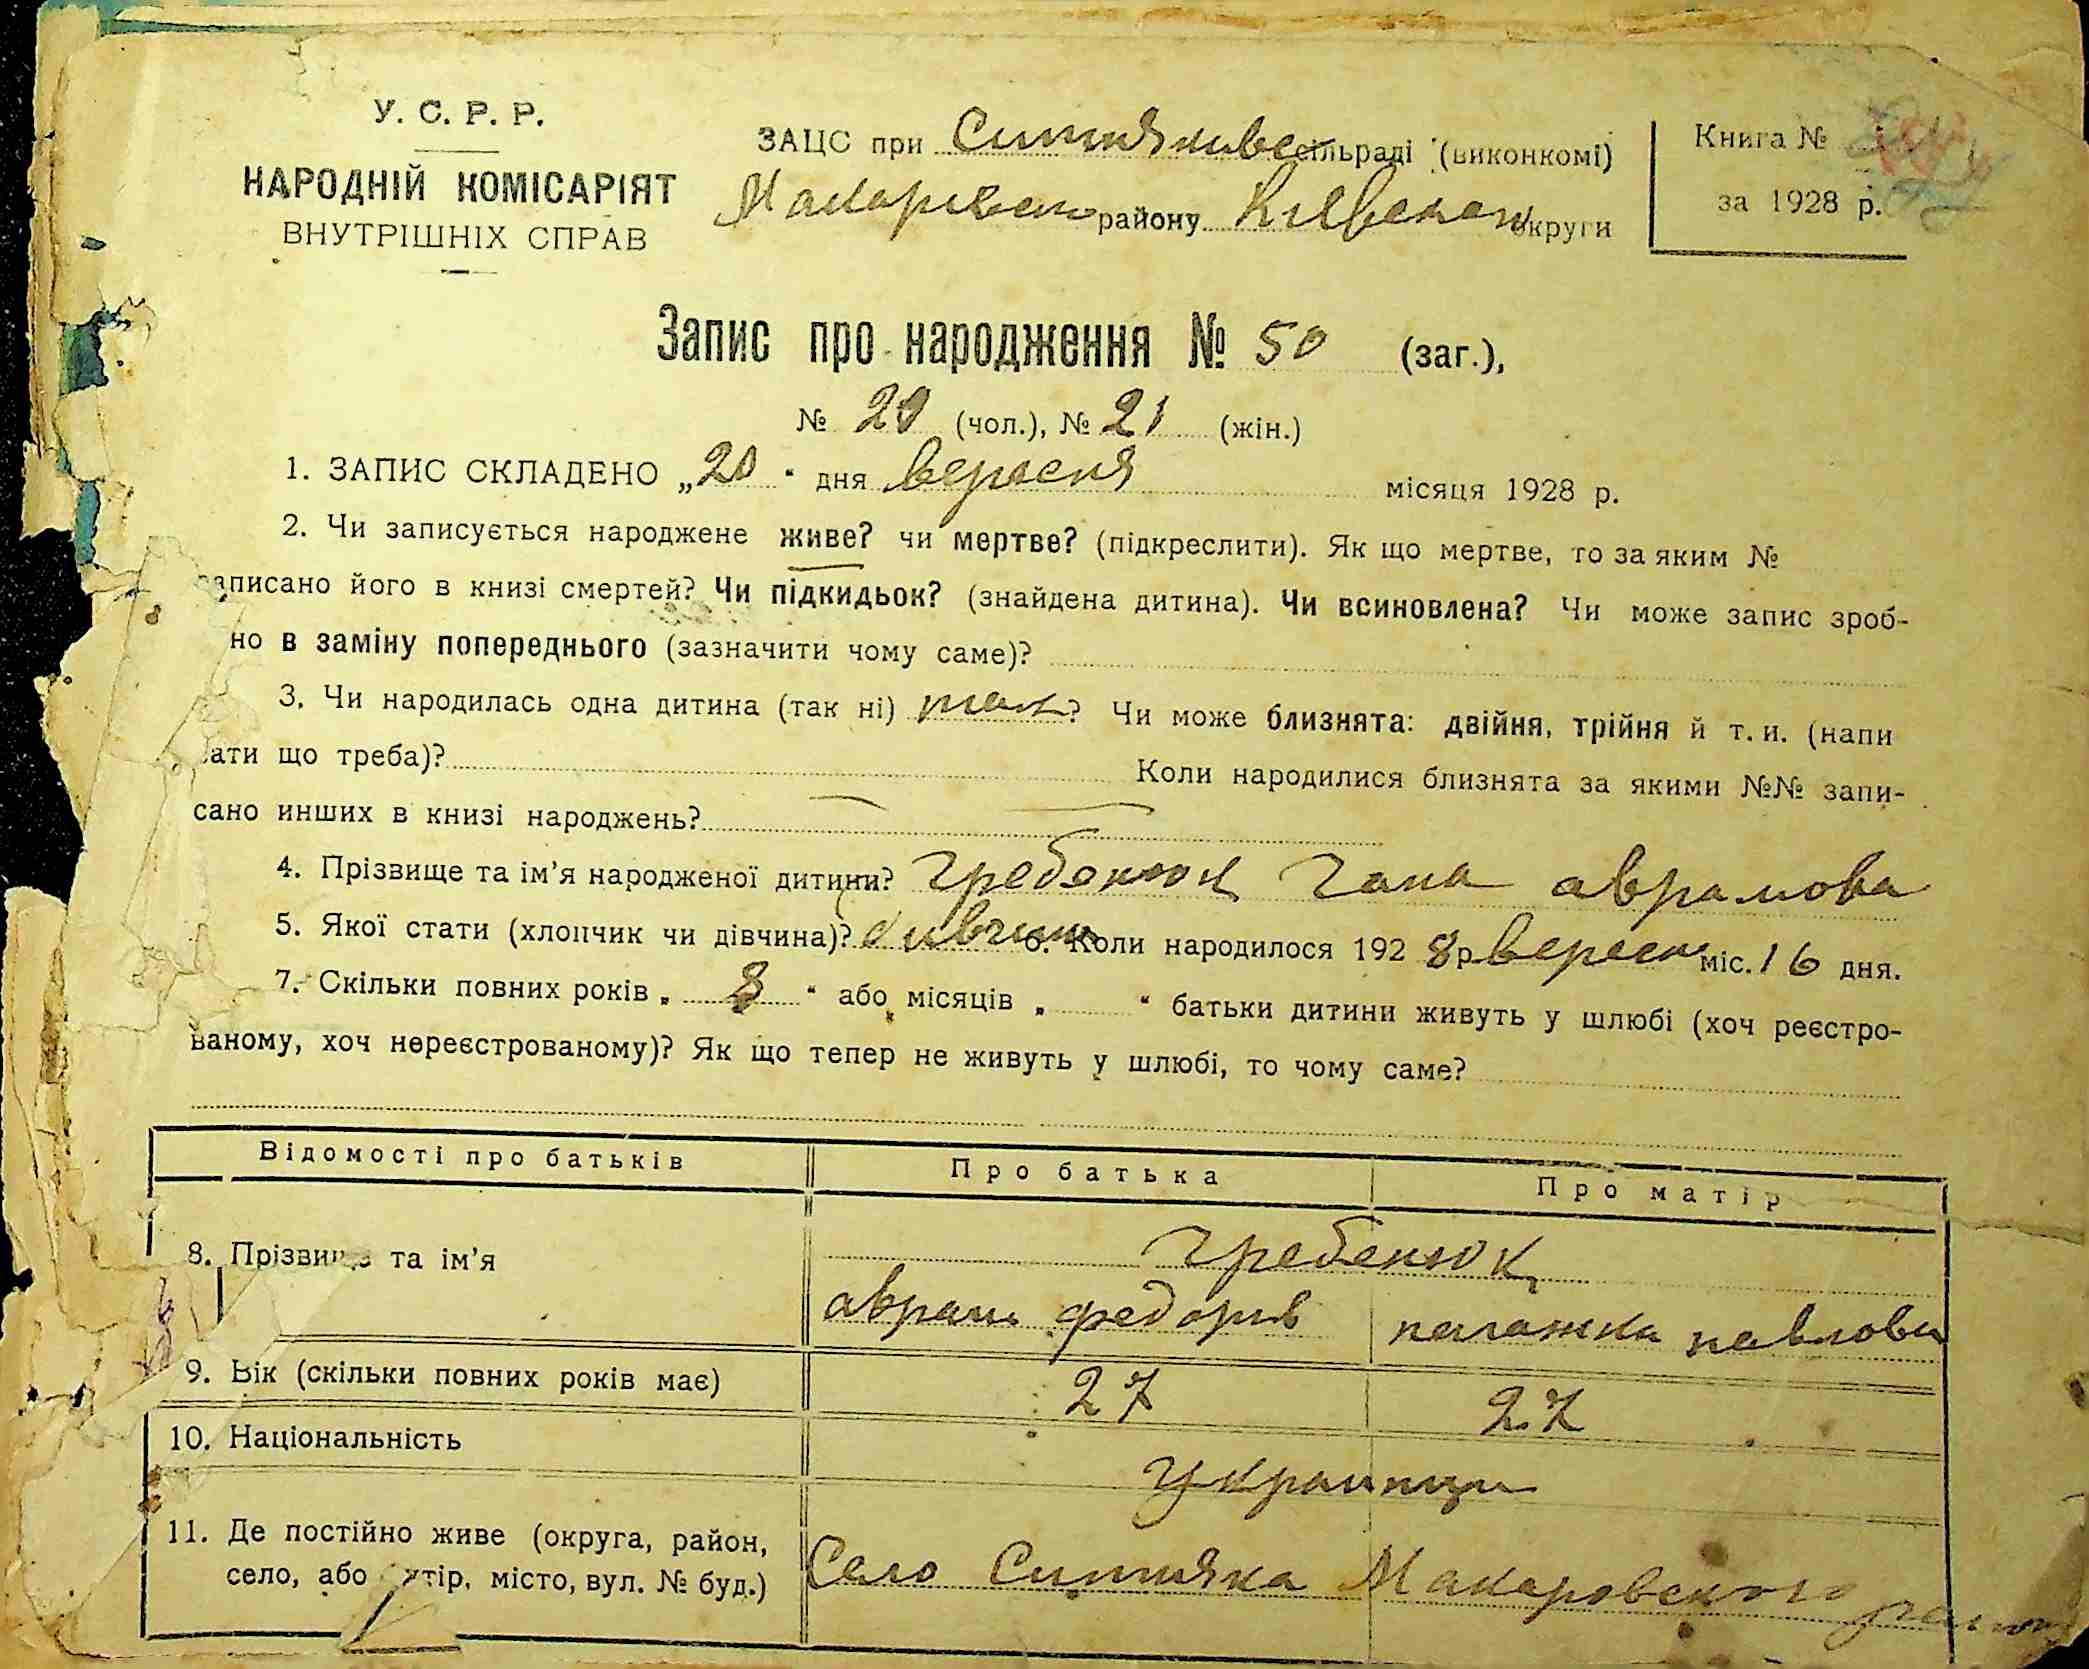 У. С. Р. Р.
НАРОДНІЙ КОМІСАРІЯТ
ВНУТРІШНІХ СПРАВ
ЗАЦС при Ситняківс сільраді (виконкомі)
Макарівськ району Київської округи
Книга №
за 1928 р.
Запис про народження № 50 (заг.),
№ 20 (чол.), № 21 (жін.)
1. ЗАПИС СКЛАДЕНО „20“ дня вересня місяця 1928 р.
2. Чи записується народжене живе? чи мертве? (підкреслити). Як що мертве, то за яким №
записано його в книзі смертей? Чи підкидьок? (знайдена дитина). Чи всиновлена? Чи може запис зроб-
но в заміну попереднього (зазначити чому саме)?
3. Чи народилась одна дитина (так ні) так? Чи може близнята: двійня, трійня й т. и. (напи
сати що треба)? Коли народилися близнята за якими №№ запи-
сано инших в книзі народжень?
4. Прізвище та ім’я народженої дитини? Гребенюк Гана аврамова
5. Якої стати (хлопчик чи дівчина)? дивчина 6. Коли народилося 1928 р. вересня міс. 16 дня.
7. Скільки повних років „ 8 “ або місяців „ “ батьки дитини живуть у шлюбі (хоч реєстро-
ваному, хоч нереєстрованому)? Як що тепер не живуть у шлюбі, то чому саме?
Відомості про батьків Про батька Про матір
Гребенюк
8. Прізвище та ім’я аврам федорив пелажка павлова
9. Вік (скільки повних років має) 27 27
10. Національність украинци
11. Де постійно живе (округа, район,
село, або хутір, місто, вул. № буд.) Село Ситняки Макаровского району